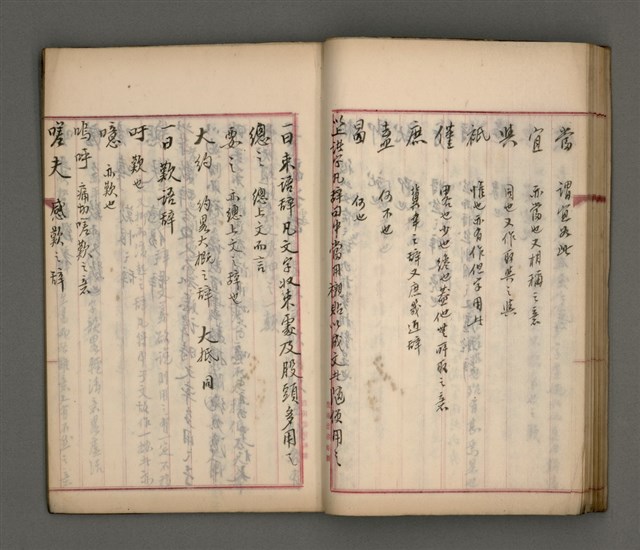 當 謂宜如此
宜 亦當也又相稱之意
與 同也又作取與之與
祇 惟也亦有作但字用者
僅 畧也少也纔也並他無所取之意
庶 冀幸之辞又庶幾近辞
盍 何不也
曷 何也
以上諸字凡辞句中當用襯貼以成文者隨便用之
一曰束语辞凡文字收束處及股頭多用之
總之 總上文而言
要之 亦總上文之辞也
大約 約畧大概之辞 大抵同
一曰歎语辞
吁 歎也
噫 亦歎也
嗚呼 痛切嗟歎之意
嗟夫 感歎之辞